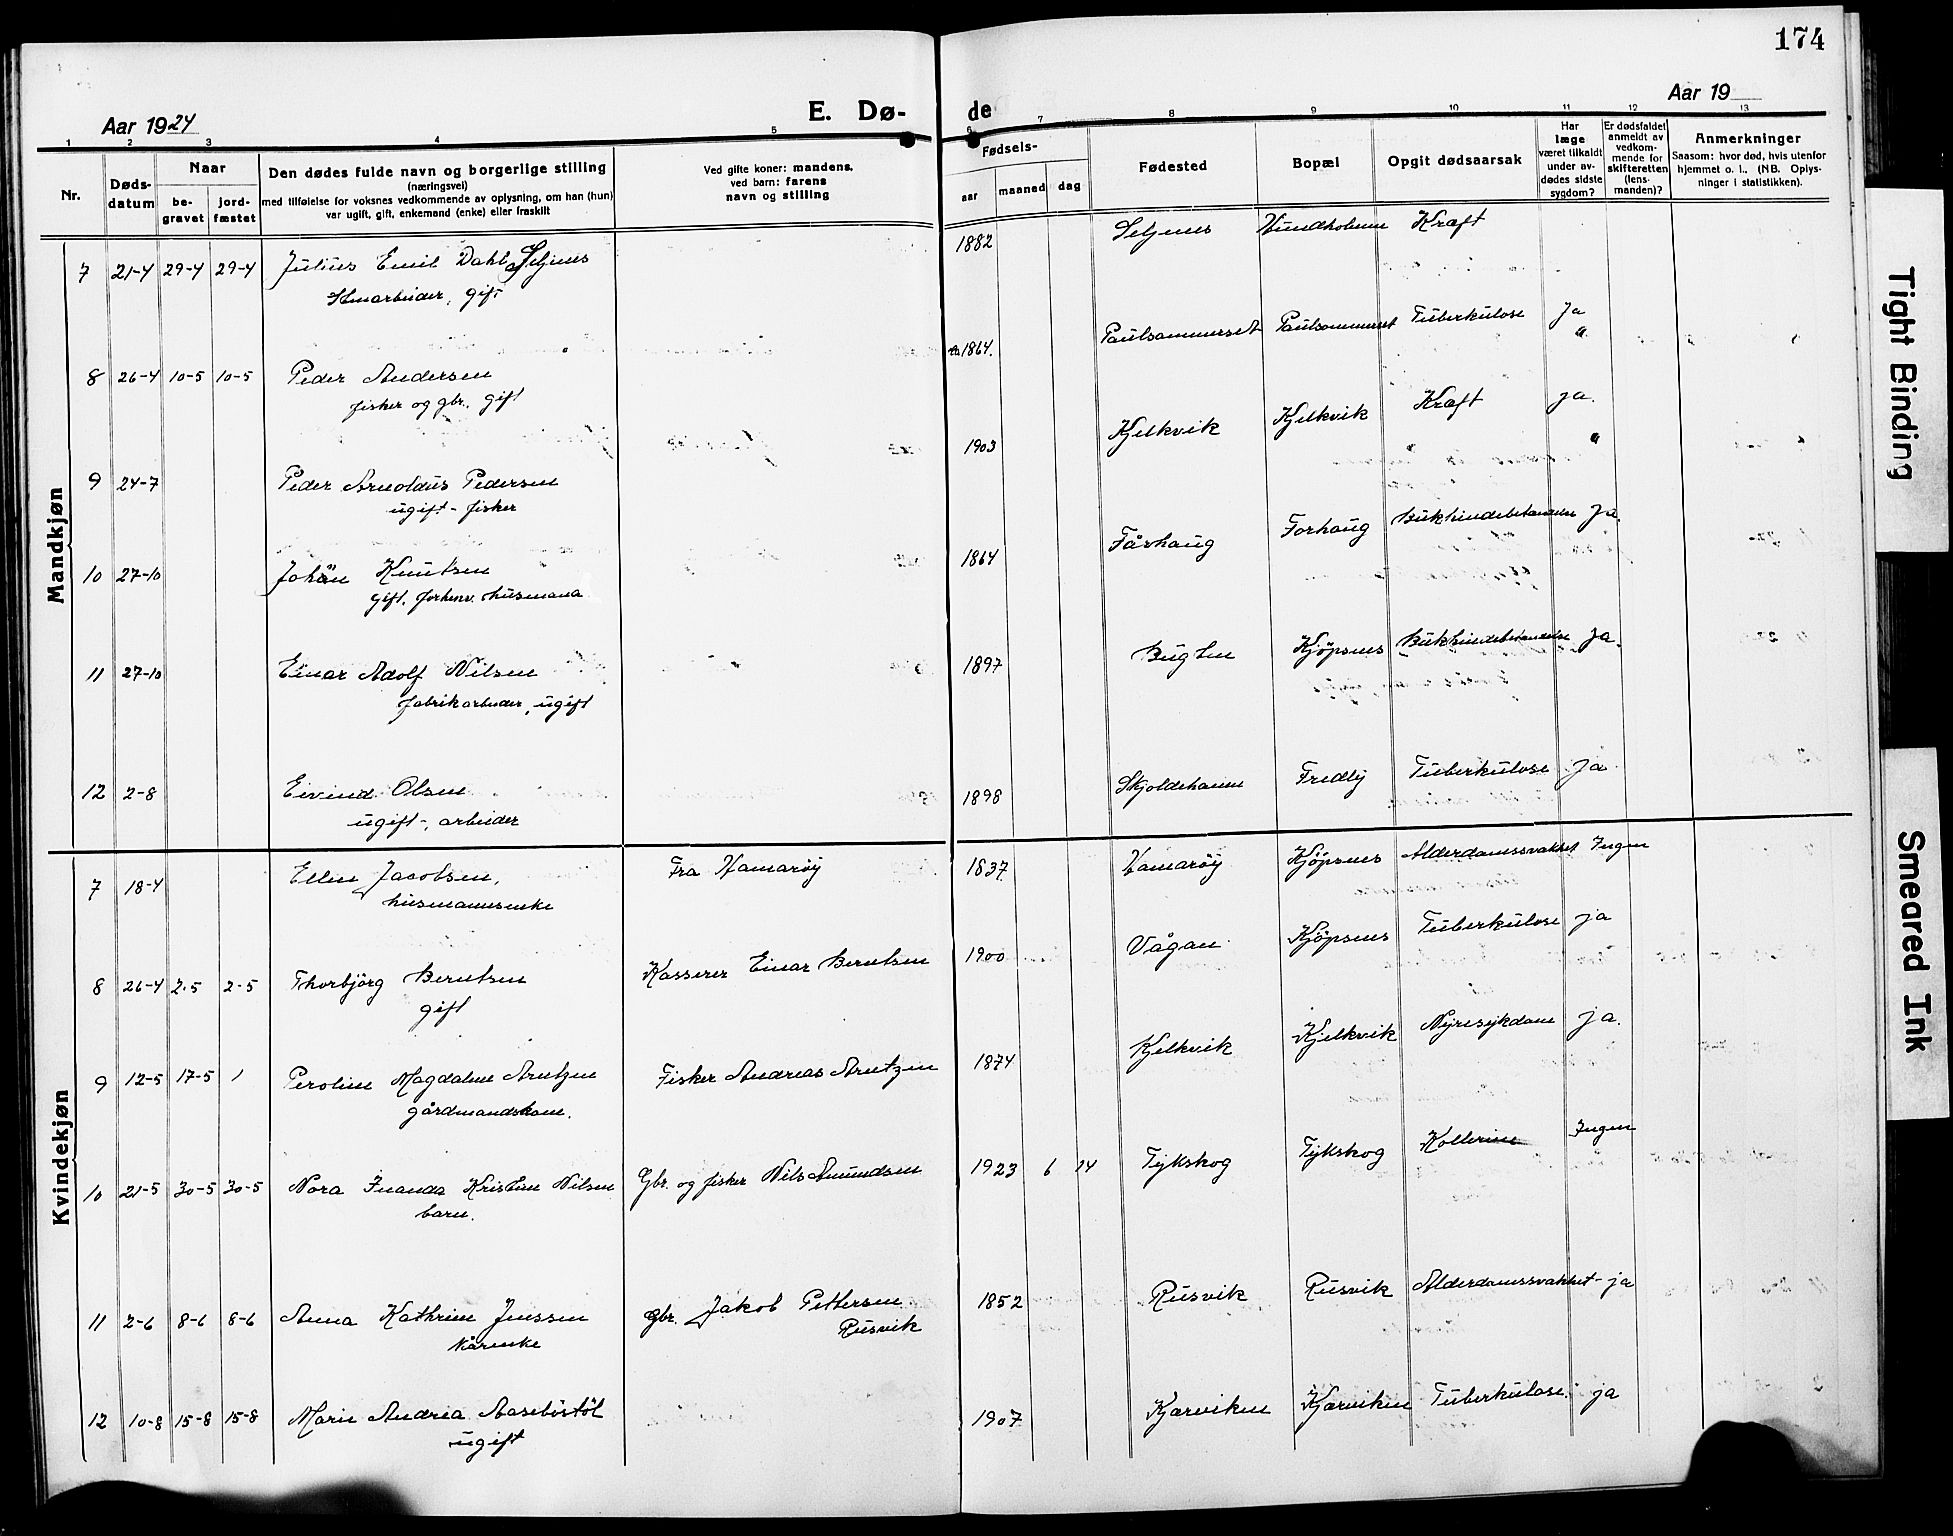 174
Aar 1924
E. Dø-
de
Aar 19
1 2 3 4 5 6 7 8 9 10 11 12 13
Nr.
Døds-
datum
Naar
be-
gravet
jord-
fæstet
Den dødes fulde navn og borgerlige stilling
(næringsvei)
med tilføielse for voksnes vedkommende av oplysning, om han (hun)
var ugift, gift, enkemand (enke) eller fraskilt
Ved gifte koner: mandens,
ved barn: farens
navn og stilling
Fødsels-
aar
maaned
dag
Fødested
Bopæl
Opgit dødsaarsak
Har
læge
været tilkaldt
under av-
dødes sidste
sygdom?
Er dødsfaldet
anmeldt av
vedkom-
mende for
skifteretten
(lens-
manden)?
Anmerkninger
Saasom: hvor død, hvis utenfor
hjemmet o. l.. (NB. Oplys-
ninger i statistikken).
Mandkjøn
7 21-4 29-4 29-4 Julius Emil Dahl Seljenes 1882 Seljenes Hundholmen Kræft
gift
8 26-4 10-5 10-5 Peder Andersen 1864. Paulsommerset Paulsommerset Tuberkulose Ja
fisker og gbr. gift
9 24-7 Peder Arnoldus Pedersen 1903 Kjelkvik Kjelkvik Kræft ja.
ugift - fisker
10 27-10 Johan Knutsen 1864 Fårhaug Forhaug Bukhindebetændelse Ja.
gift. forhenv. husmand
11 27-10 Einar Adolf Nilsen 1897 Bugten Kjöpsnes Bukhindebetændelse Ja.
fabrikarbeider, ugift
12 2-8 Eivind Olsen 1898 Skjoldehamn Fredly Tuberkulose Ja
ugift -, arbeider
Kvindekjøn
7 18-4 Ellen Jacobsen, Fra Hamaröy 1837 Hamaröy Kjöpsnes Alderdomssvakhet Ingen
husmannsenke
8 26-4 2-5 2-5 Thorbjörg Berntsen Kasserer Einar Berntsen 1900 Vågan Kjöpsnes Tuberkulose ja
gift
9 12-5 17-5 1 Peroline Magdalene Arntzen Fisker Andreas Arntzen 1874 Kjelkvik Kjelkvik Nyresykdom ja.
gårdmandskone.
10 21-5 30-5 30-5 Nora Inanda Kristine Nilsen Gbr. og fisker Nils Amundsen 1923 6 14 Tykskog Tykskog Kollerine Ingen
barn.
11 2-6 8-6 8-6 Anna Kathrine Jenssen gbr. Jakob Pettersen 1852 Rusvik Rusvik Alderdomssvakhet - ja
Kårenke Rusvik
12 10-8 15-8 15-8 Marie Andrea Aaseböstöl 1907 Kjærviken Kjærviken Tuberkulose. ja
ugift
Tight Binding
Smeared Ink